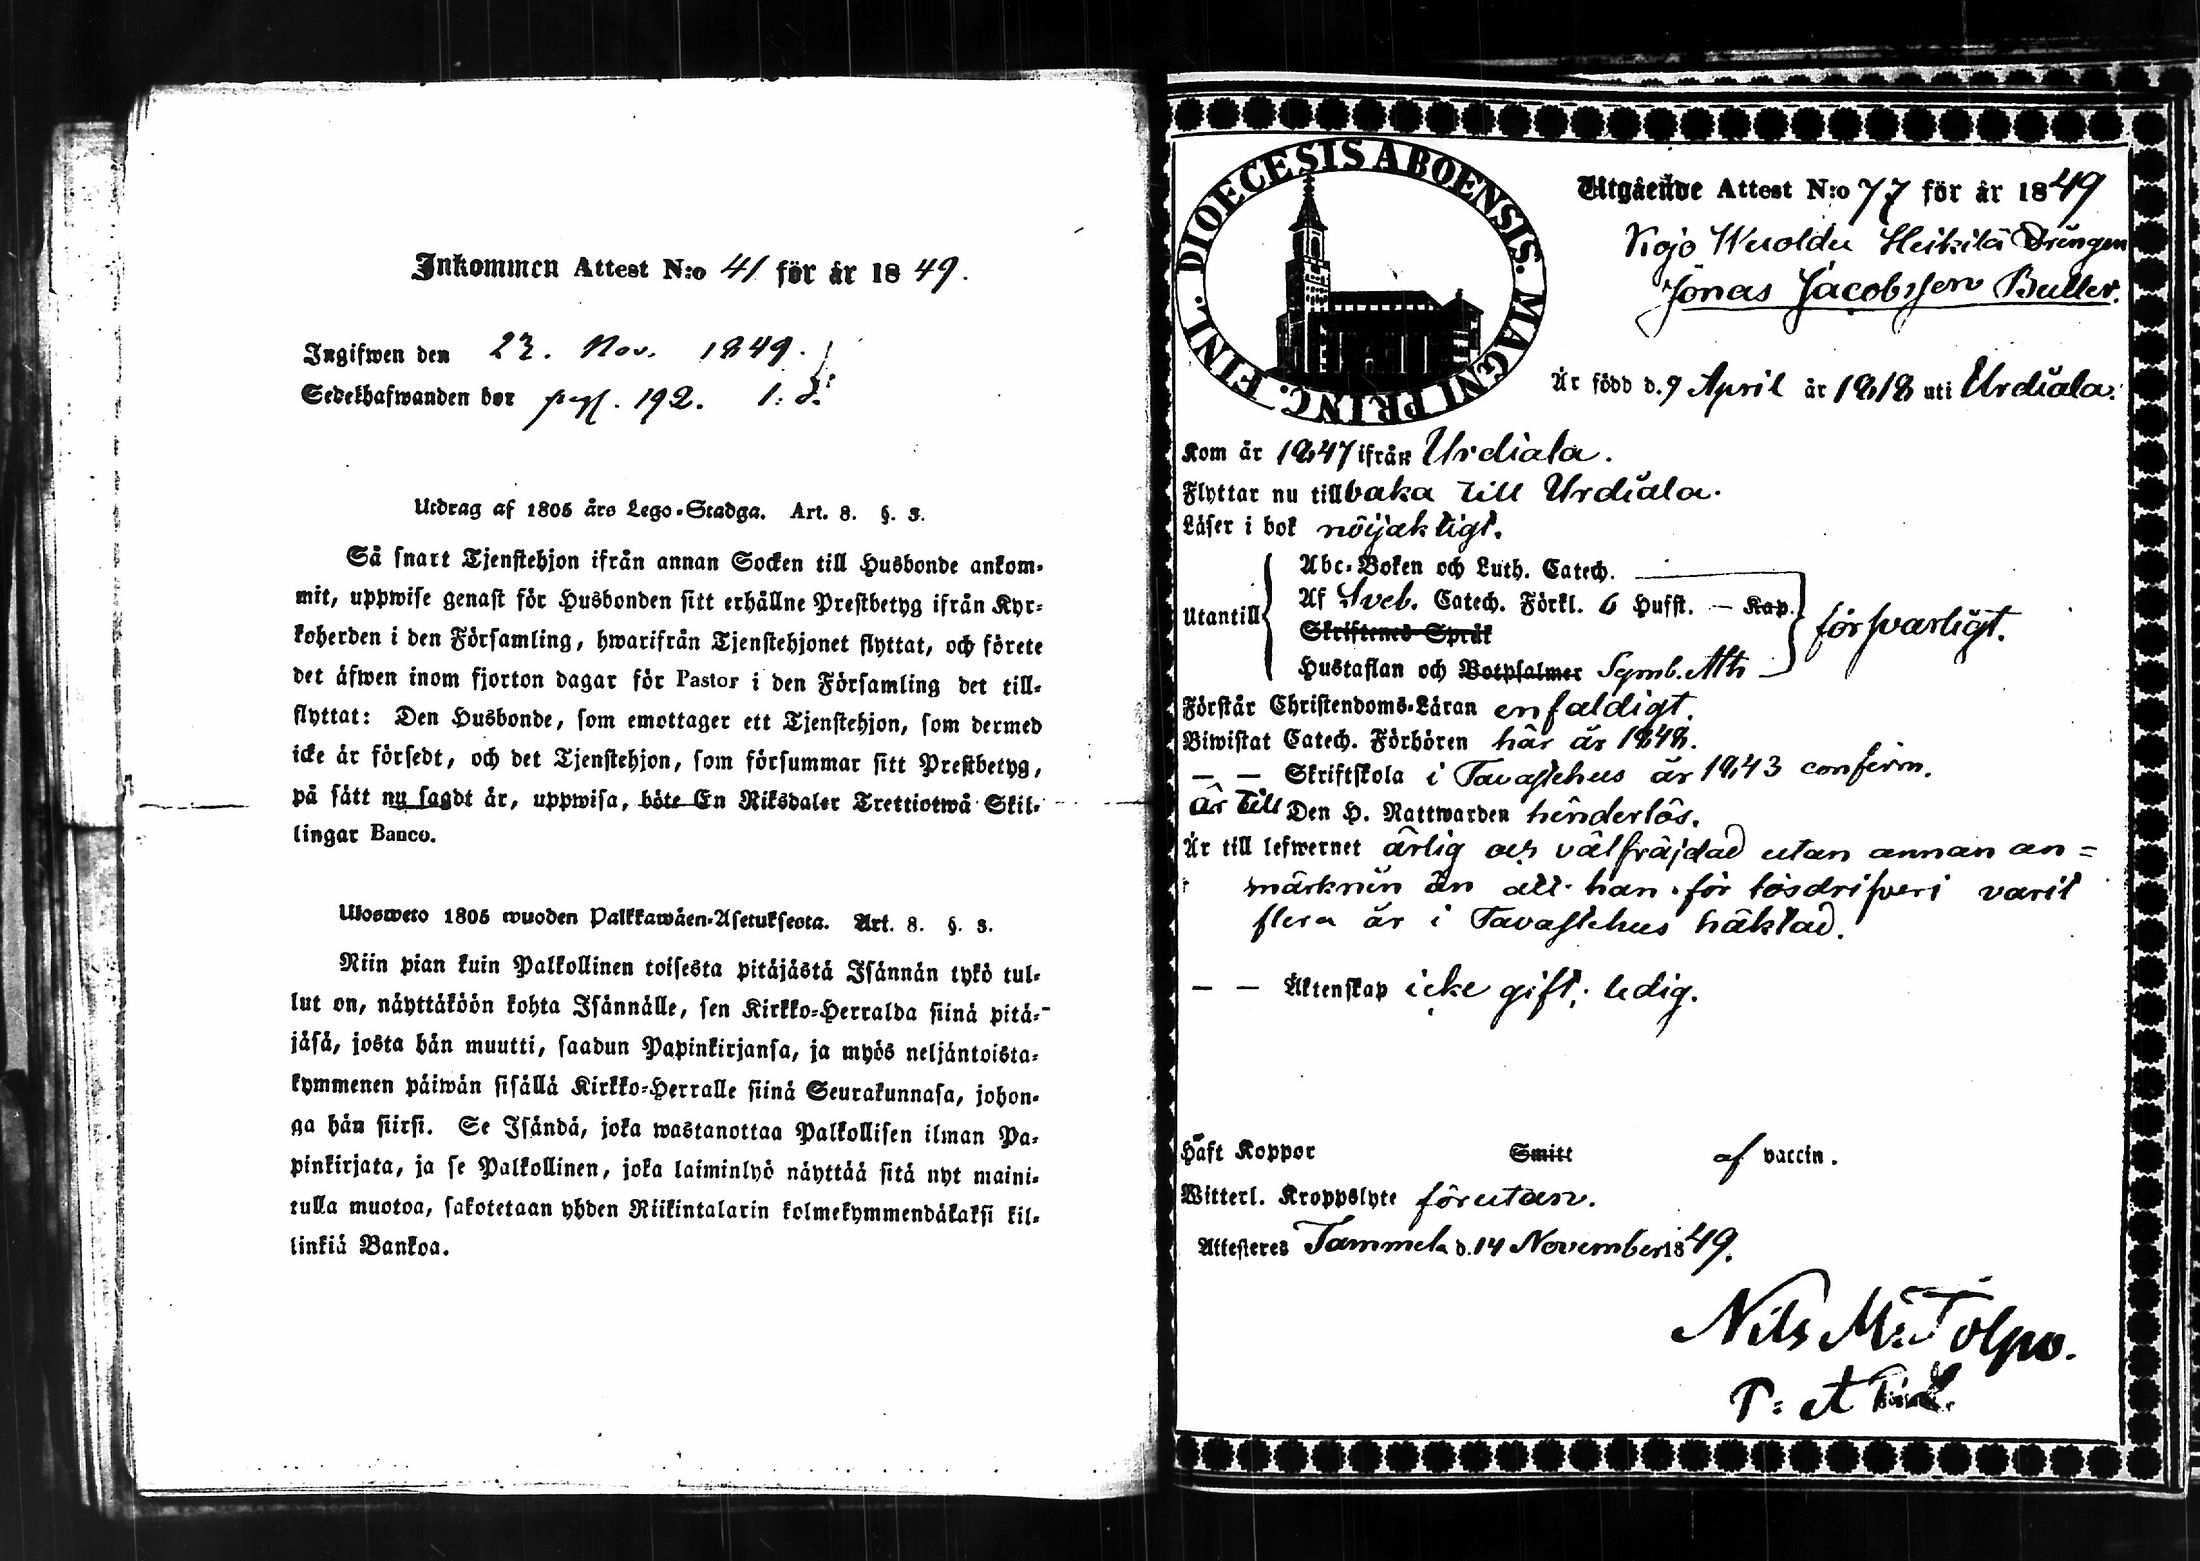 Inkommen Attest N:o 41 för år 1849.
Ingifwen den 23. Nov. 1849.
Sedelhafwanden bor pag. 192. 1. d.
Utdrag af 1805 års Lego-Stadga. Art. 8. §. 3.
Så snart Tjenstehjon ifrån annan Socken till Husbonde ankom-
mit, uppwise genast för Husbonden sitt erhållne Prestbetyg ifrån Kyr-
koherden i den Församling, hwarifrån Tjenstehjonet flyttat, och förete
det äfwen inom fjorton dagar för Pastor i den Församling det till-
flyttat: Den Husbonde, som emottager ett Tjenstehjon, som dermed
icke är försedt, och det Tjenstehjon, som försummar sitt Prestbetyg,
på sätt nu sagdt är, uppwisa, böte En Riksdaler Trettiotwå Skil-
lingar Banco.
Ulosweto 1805 wuoden Palkkawäen-Asetuksesta. Art. 8. §. 3.
Niin pian kuin Palkollinen toisesta pitäjästä Isännän tykö tul-
lut on, näyttäköön kohta Isännälle, sen Kirkko-Herralda siinä pitä-
jäsä, josta hän muutti, saadun Papinkirjansa, ja myös neljäntoista-
kymmenen päiwän sisällä Kirkko-Herralle siinä Seurakunnasa, johon-
ga hän siirsi. Se Isändä, joka wastanottaa Palkollisen ilman Pa-
pinkirjata, ja se Palkollinen, joka laiminlyö näyttää sitä nyt maini-
tulla muotoa, sakotetaan yhden Riikintalarin kolmekymmendäkaksi kil-
linkiä Bankoa.
DIOECESIS ABOENSIS. MAGNI PRINC. FINL.
Utgående Attest N:o 77 för år 1849
Kojo Heikilä Drängen
Jonas Jacobsson Buller.
Är född d. 9 April år 1818 uti Urdiala.
Kom år 1847 ifrån Urdiala.
Flyttar nu tillbaka till Urdiala.
Läser i bok nöijaktigt.
Utantill
Abc-Boken och Luth. Catech.
Af Sveb. Catech. Förkl. 6 Hufst. — Kap.
Skriftenes Språk
Hustaflan och Botpsalmer Symb. Ath
försvarligt.
Förstår Christendoms-Läran enfaldigt.
Biwistat Catech. Förhören här år 1848.
— — Skriftskola i Tavastehus år 1843 confirm.
är till Den H. Nattwarden hinderlös.
Är till lefwernet ärlig och välfräjdad utan annan an=
märknin än att han för lösdrifveri varit
flera år i Tavastehus häktad.
— — Äktenskap icke gift; ledig.
Häft Koppor Smitt af vaccin.
Witterl. Kroppslyte förutan.
Attesteres Tammela d. 14 November 1849.
Nils M. Tolpo.
P: et